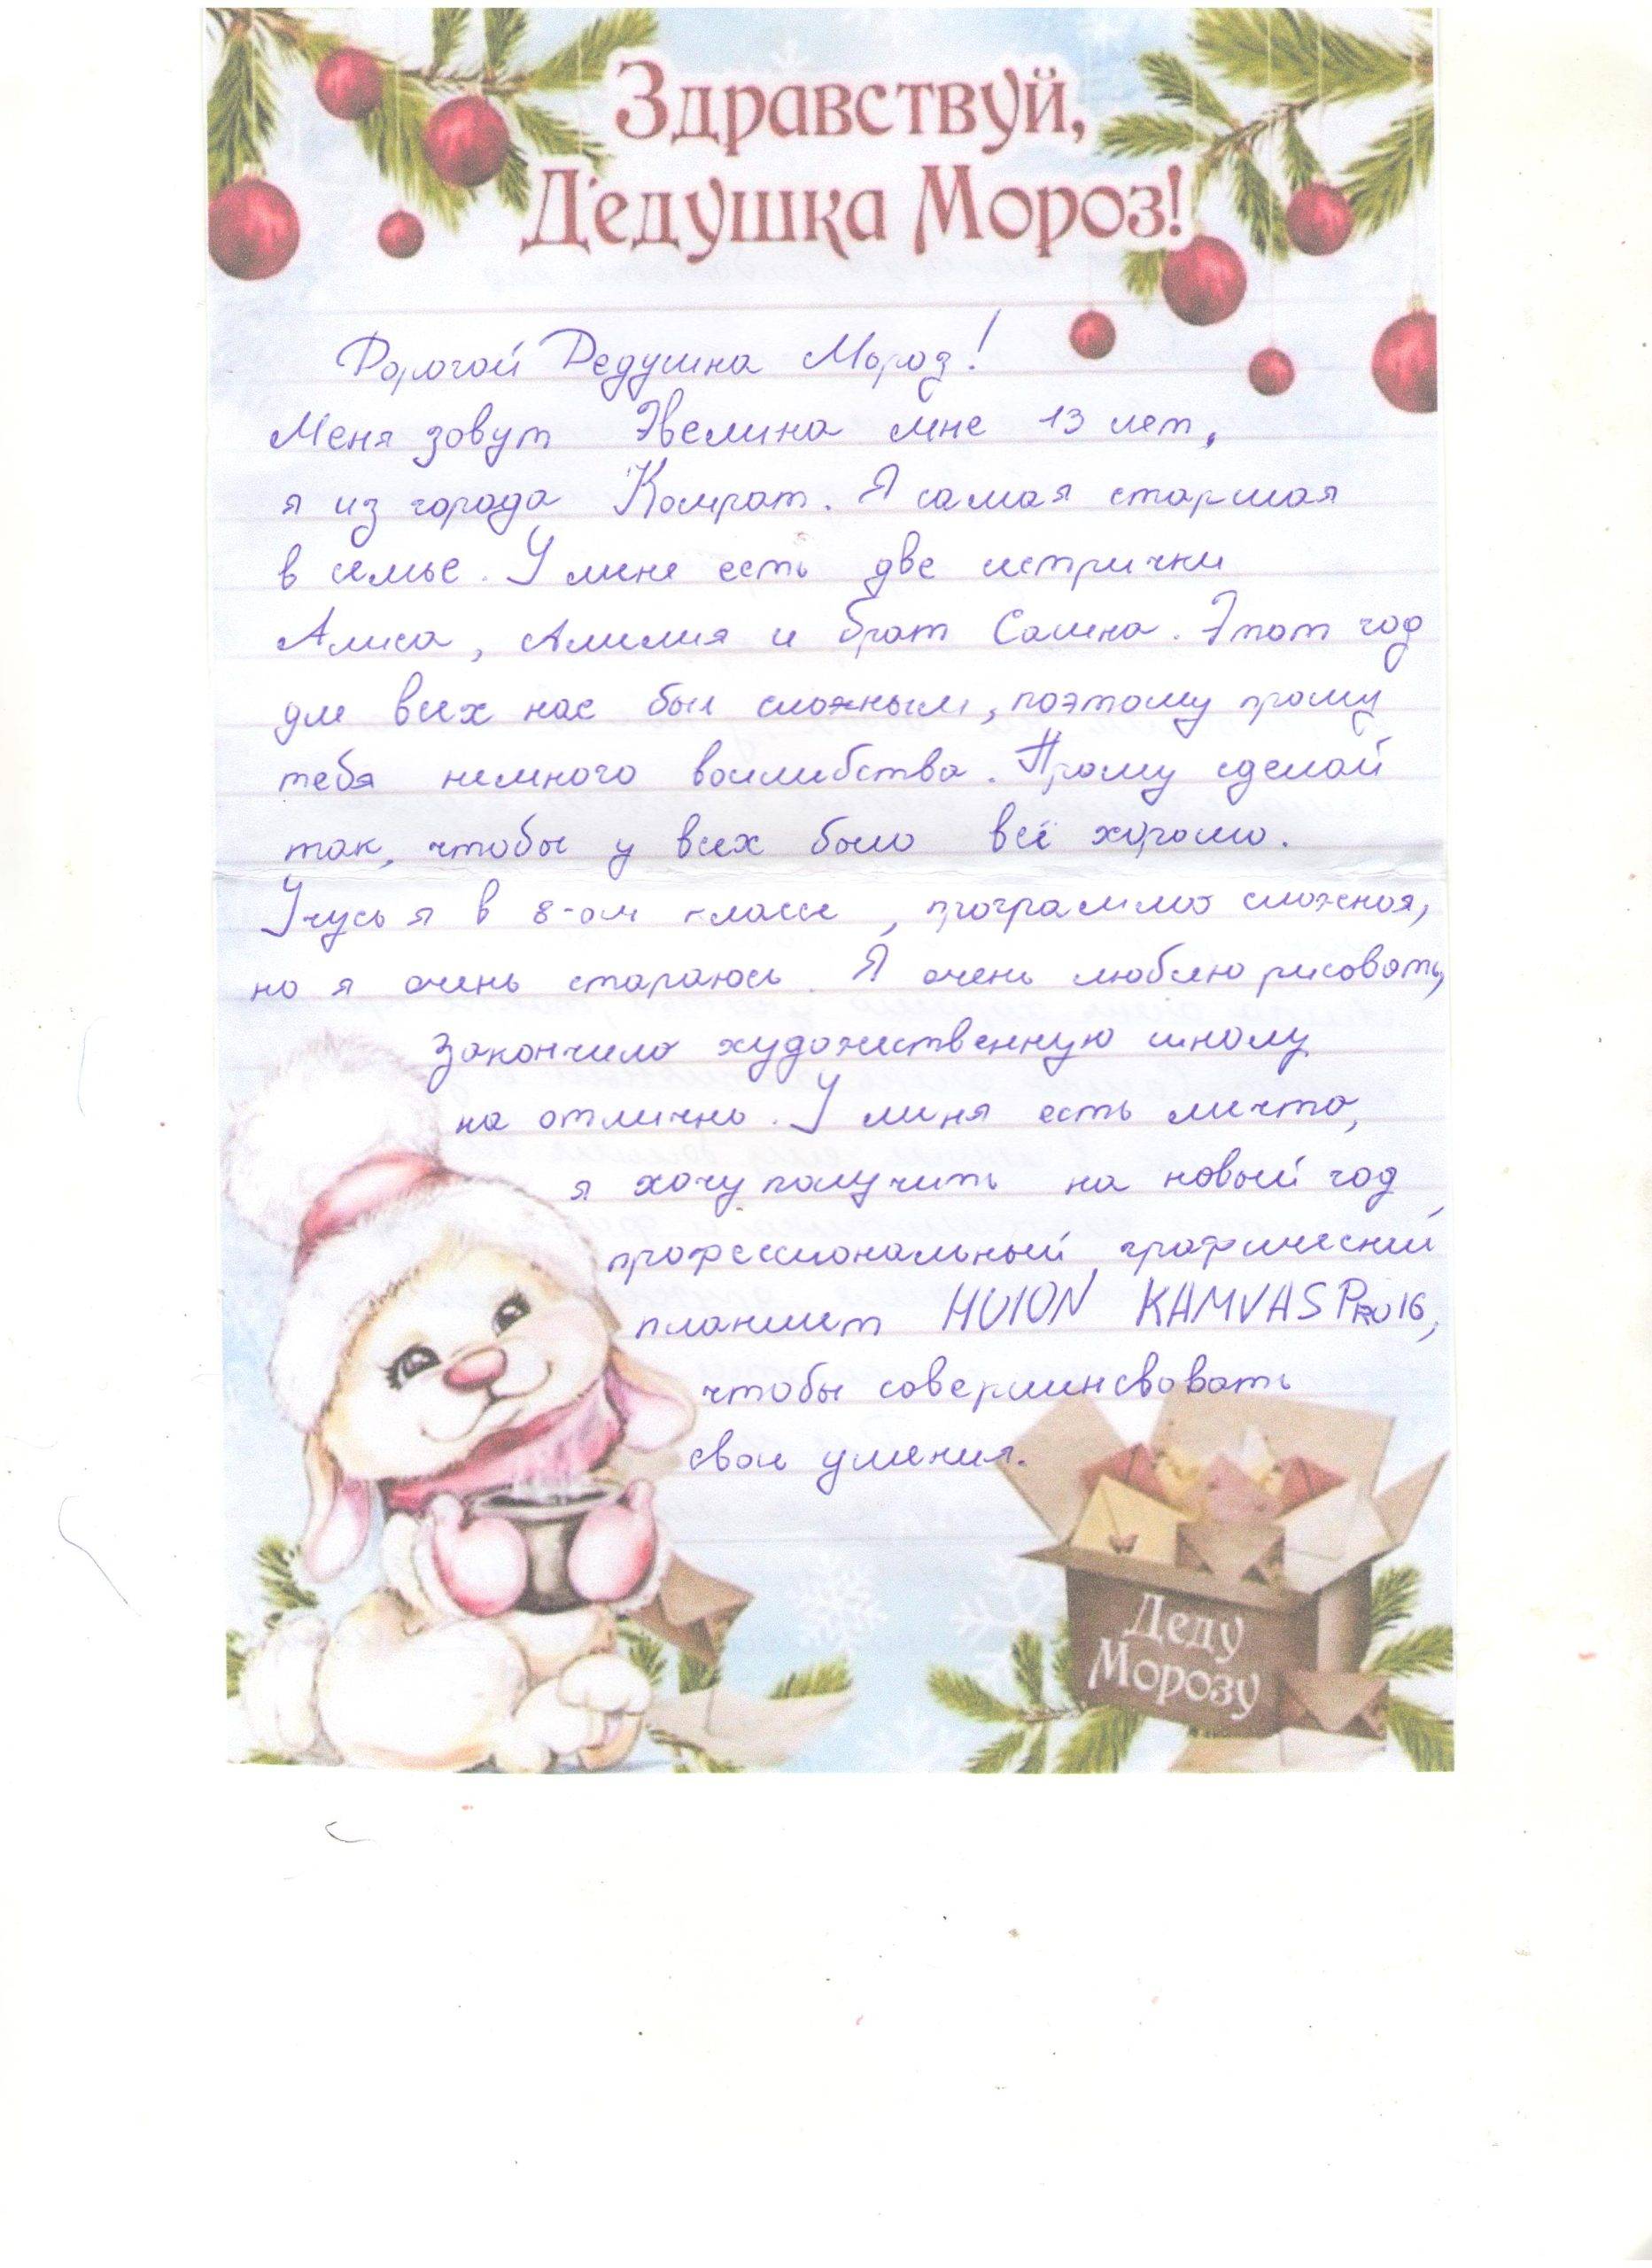 Здравствуй,
Дедушка Мороз!
Дорогой Дедушка Мороз!
Меня зовут Эвелина мне 13 лет,
я из города Комрат. Я самая старшая
в семье. У мене есть две сестрички
Алиса, Амилия и брат Сашка. Этот год
для всех нас был сложным, поэтому прошу
тебя немного волшебства. Прошу сделай
так, чтобы у всех было всё хорошо.
Учусь я в 8-ом классе, программа сложная,
но я очень стараюсь. Я очень люблю рисовать,
закончила художественную школу
на отлично. У меня есть мечта,
я хочу получить на новый год
профессиональный графический
планшет HUION KAMVAS PRO 16,
чтобы совершинсвовать
свои умения.
Деду
Морозу